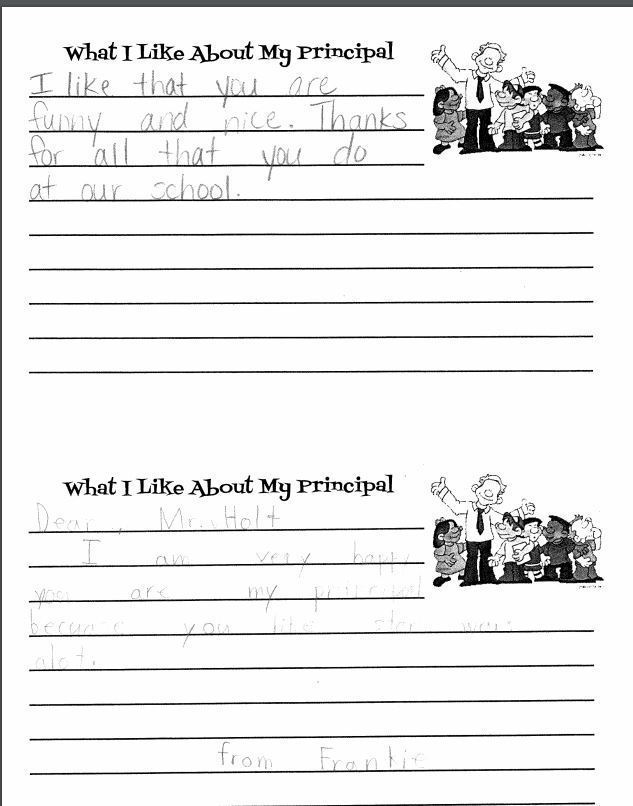 What I Like About My Principal
I like that you are
funny and nice. Thanks
for all that you do
at our school.
What I Like About My Principal
Dear, Mr. Holt
I am very happy
you are my principal
because you like star wars
alot.
from Frankie